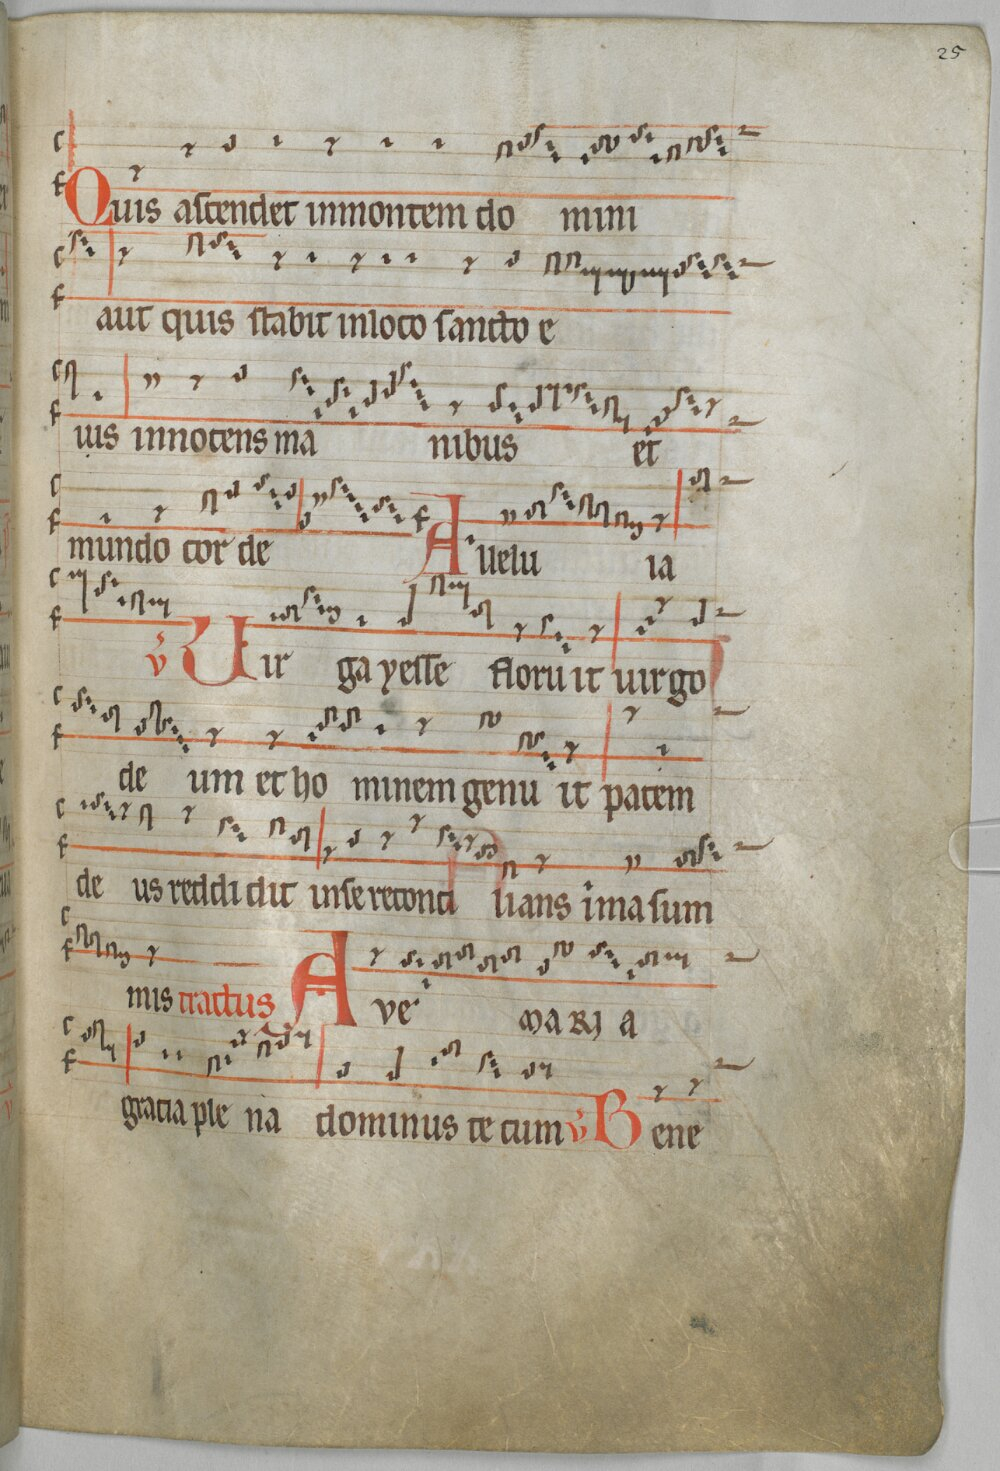 25
Quis ascendet inmontem do mini
aut quis stabit inloco sancto e
ius innocens ma nibus et
mundo cor de Allelu ia
v Uir ga yesse floru it uirgo
de um et ho minem genu it pacem
de us reddi dit inse reconci lians ima sum
mis tractus A ve MARIA
gracia ple na dominus tecum v Bene